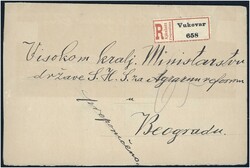 R
Vukovar
658
Visokom kralj. Ministarstvu
države S.H.S. za Agrarnu reformu
preporučeno
Beogradu.